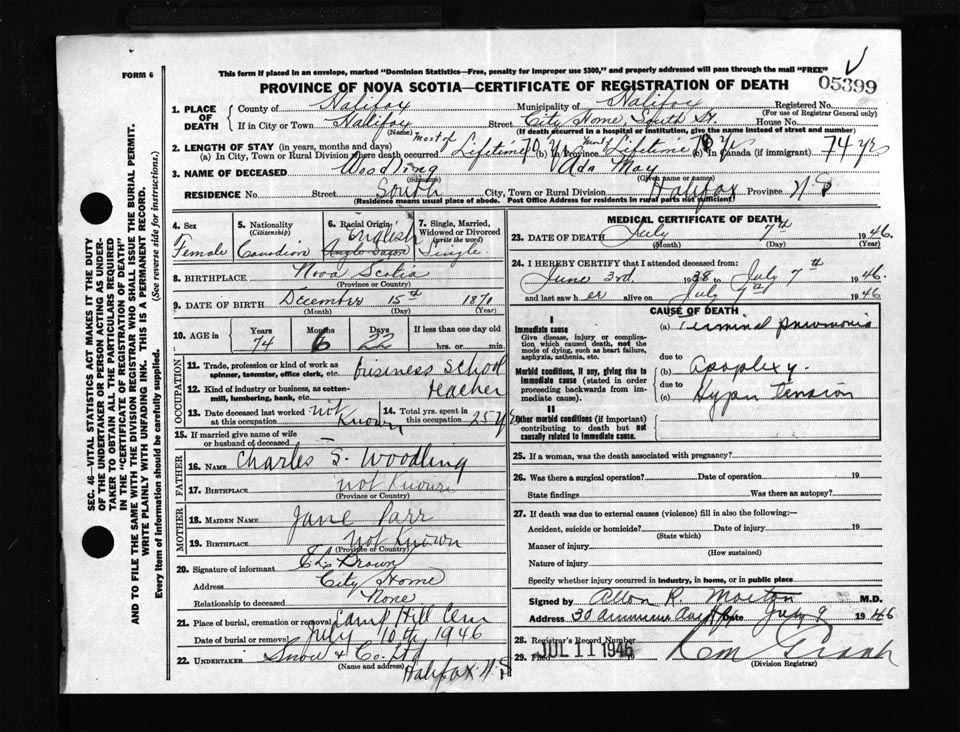 FORM 6
This form if placed in an envelope, marked "Dominion Statistics—Free, penalty for improper use $300," and properly addressed will pass through the mail "FREE"
PROVINCE OF NOVA SCOTIA—CERTIFICATE OF REGISTRATION OF DEATH
05399
1. PLACE OF DEATH
County of Halifax Municipality of Halifax Registered No.
(For use of Registrar General only)
If in City or Town Halifax Street City Home, South St. House No.
(Name) (If death occurred in a hospital or institution, give the name instead of street and number)
2. LENGTH OF STAY (in years, months and days)
(a) In City, Town or Rural Division where death occurred Most of Lifetime (b) In Province 70 yrs Most Lifetime (c) In Canada (if immigrant) 74 yrs
3. NAME OF DECEASED Woodling Ada May
(Surname) (Given name or names)
RESIDENCE No. Street South City, Town or Rural Division Halifax Province N.S
(Residence means usual place of abode. Post Office Address for residents in rural parts not sufficient)
4. Sex
Female
5. Nationality
(Citizenship)
Canadian
6. Racial Origin
English
Anglo Saxon
7. Single, Married, Widowed or Divorced
(write the word)
Single
8. BIRTHPLACE Nova Scotia
(Province or Country)
9. DATE OF BIRTH December 15th 1871
(Month) (Day) (Year)
10. AGE in
Years Months Days If less than one day old
74 6 22 hrs. or min.
OCCUPATION
11. Trade, profession or kind of work as spinner, teamster, office clerk, etc. business school
12. Kind of industry or business, as cotton-mill, lumbering, bank, etc. teacher
13. Date deceased last worked at this occupation not Known
14. Total yrs. spent in this occupation 25 yrs
15. If married give name of wife or husband of deceased
FATHER
16. NAME Charles S. Woodling
17. BIRTHPLACE not Known
(Province or Country)
MOTHER
18. MAIDEN NAME Jane Parr
19. BIRTHPLACE Not Known
(Province or Country)
20. Signature of informant Brown
Address City Home
Relationship to deceased None
21. Place of burial, cremation or removal Camp Hill Cem
Date of burial or removal July 10th 1946
22. UNDERTAKER Snow & Co. Ltd
(Name and address) Halifax N.S
MEDICAL CERTIFICATE OF DEATH
23. DATE OF DEATH July 7th 1946.
(Month) (Day) (Year)
24. I HEREBY CERTIFY that I attended deceased from:
June 3rd. 1938 to July 7th 1946.
and last saw her alive on July 7th 1946
CAUSE OF DEATH
I
Immediate cause
Give disease, injury or complication which caused death, not the mode of dying, such as heart failure, asphyxia, asthenia, etc.
(a) Terminal pneumonia
due to
Morbid conditions, if any, giving rise to immediate cause (stated in order proceeding backwards from immediate cause).
(b) apoplexy.
due to
(c) Hyper tension
II
Other morbid conditions (if important) contributing to death but not causally related to immediate cause.
25. If a woman, was the death associated with pregnancy?
26. Was there a surgical operation? Date of operation 19
State findings Was there an autopsy?
27. If death was due to external causes (violence) fill in also the following:—
Accident, suicide or homicide? Date of injury 19
(State which)
Manner of injury
(How sustained)
Nature of injury
Specify whether injury occurred in industry, in home, or in public place
Signed by Allan R. Morton M.D.
Address 30 Date July 9 1946
28. Registrar's Record Number
29. Filed JUL 11 1946
(Division Registrar)
SEC. 46—VITAL STATISTICS ACT MAKES IT THE DUTY
OF THE UNDERTAKER OR PERSON ACTING AS UNDERTAKER TO OBTAIN ALL THE PARTICULARS REQUIRED
IN THE "CERTIFICATE OF REGISTRATION OF DEATH"
AND TO FILE THE SAME WITH THE DIVISION REGISTRAR WHO SHALL ISSUE THE BURIAL PERMIT.
WRITE PLAINLY WITH UNFADING INK. THIS IS A PERMANENT RECORD.
Every item of information should be carefully supplied. (See reverse side for instructions.)